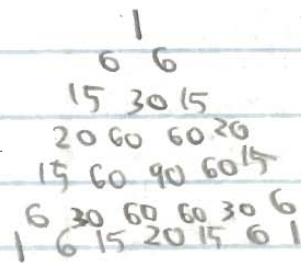 1
6 6
15 30 15
20 60 60 20
15 60 90 60 15
6 30 60 60 30 6
1 6 15 20 15 6 1